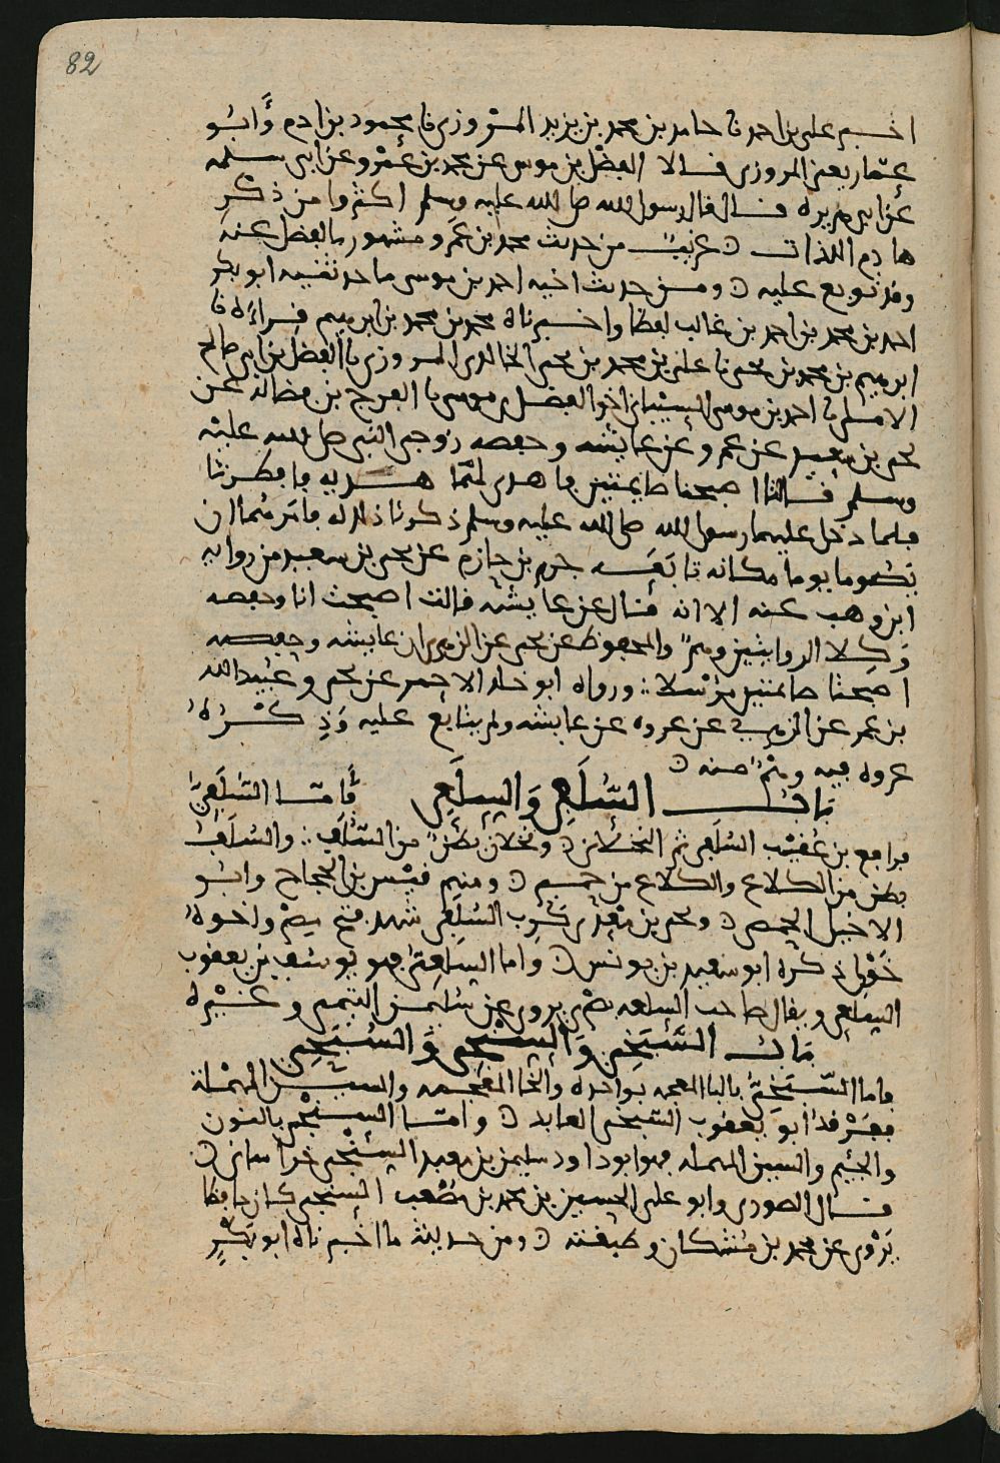 82
اخبرنا علي بن احمد نا حامد بن محمد بن يزيد المروزي نا محمود بن ادم وابو
عمار يعني المروزي قالا الفضل بن موسى عن محمد بن عمرو عن ابي سلمه
عن ابي هريره قال قال رسول الله صلى الله عليه وسلم اكثروا من ذكر
هاذم اللذات غريب من حديث محمد بن عمرو مشهور بالفضل عنه
وقد توبع عليه ومن حديث اخيه احمد بن موسى ما حدثنيه ابو بكر
احمد بن محمد بن احمد بن غالب لفظا واخبرناه محمد بن محمد بن ابرهيم قراءة نا
ابرهيم بن محمد بن يحيى نا علي بن محمد بن يحيى الخالدي المروزي نا الفضل بن ابي صالح
الاملي نا احمد بن موسى السيناني اخو الفضل بن موسى نا الفرج بن فضاله عن
يحيى بن سعيد عن عمره عن عايشه وحفصه زوجي النبي صلى الله عليه
وسلم قالتا اصبحنا صايمتين فاهدى لنا هديه فافطرنا
فلما دخل عليهما رسول الله صلى الله عليه وسلم ذكرتا ذلك له فامرهما ان
تصوما يوما مكانه تابعه جرير بن حازم عن يحيى بن سعيد من روايه
ابن وهب عنه الا انه قال عن عايشه قالت اصبحت انا وحفصه
وكلا الروايتين وهم والمحفوظ عن يحيى عن الزهري ان عايشه وحفصه
اصبحتا صايمتين مرسلا ورواه ابو خالد الاحمر عن يحيى وعبيد الله
بن عمر عن الزهري عن عروه عن عايشه ولم يتابع عليه وذكره
عروه فيه وهم منه
باب السلفي والسلعي فاما السلفي
فرافع بن عقيب السلفي ثم النخلاني ونخلان بطن من السلف والسلف
بطن من الكلاع والكلاع من حمير ومنهم قيس بن الحجاج وابو
الاخيل الحمصي ويحيى بن معدي كرب السلفي شهد فتح مصر واخوه
خولي ذكره ابو سعيد بن يونس واما السلعي فهو يوسف بن يعقوب
السلعي ويقال صاحب السلعه بصري يروي عن سليمن التيمي وغيره
باب السبخي والسنجي والسبحي
فاما السبخي بالبا المعجمه بواحده والخا المعجمه والسين المهمله
ففرقد ابو يعقوب السبخي العابد واما السنجي بالنون
والجيم والسين المهمله فهو ابو داود سليمن بن معبد السنجي خراساني
قال الصوري وابو علي الحسين بن محمد بن مصعب السنجي كان حافظا
يروي عن محمد بن مشكان وطبقته ومن حديثه ما اخبرناه ابو بكر